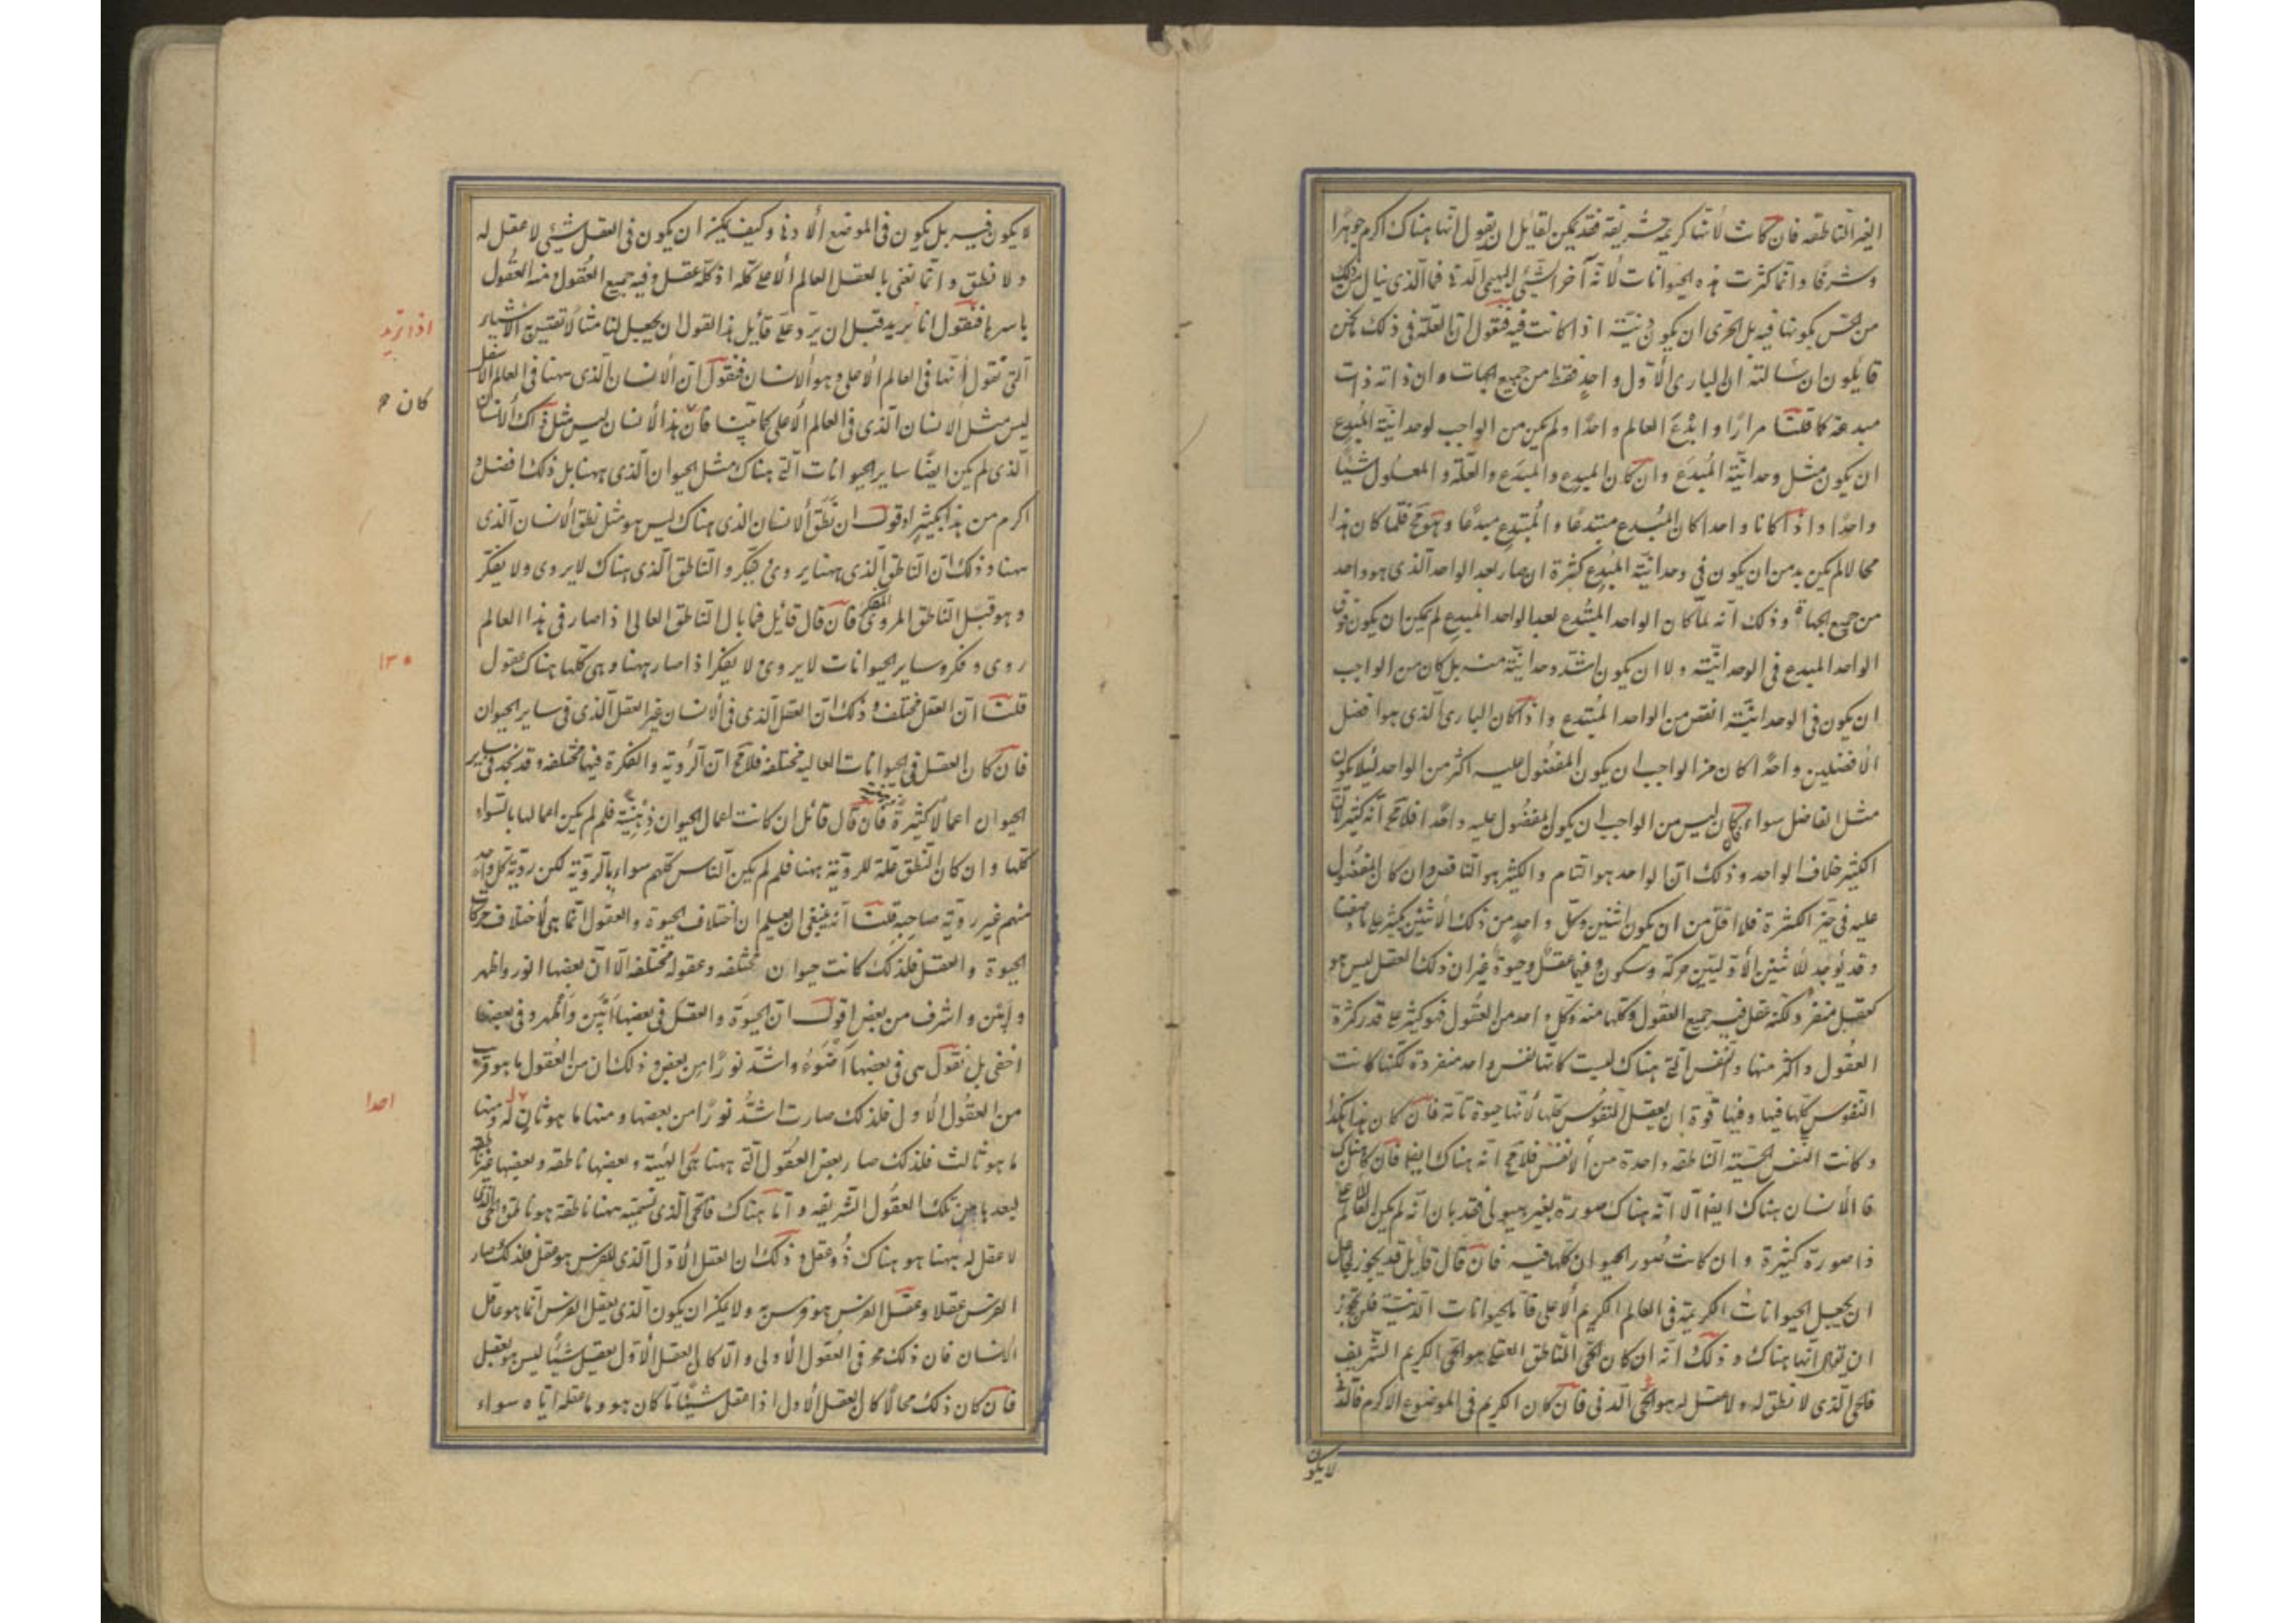 الغير الناطقه فان كانت لأنها كريمة شريفة فقد يمكن لقائل ان يقول انها هناك اكرم جوهرا
وشرفا وانما كثرت هذه الحيوانات لانه آخر الشئ البهيمى الدنى فما الذى ينال من ذلك
من الحس بكونها فيه بل الحرى ان يكون دنية اذا كانت فيه فنقول ان العلة فى ذلك ما نحن
قايلون ان شا الله ان البارى الأول واحد فقط من جميع الجهات وان ذاته ذات
مبدعة كما قلنا مرارًا وابدع العالم واحدًا ولم يكن من الواجب لوحدانية المبدع
ان يكون مثل وحدانية المبدَع وان كان المبدِع والمبدَع والعلة والمعلول شيئًا
واحدًا واذا كانا واحدا كان المبدع مبتدعًا والمبتدع مبدعًا وهو مح فلما كان هذا
محالا لم يكن بد من ان يكون فى وحدانية المبدع كثرة ان صار بعد الواحد الذى هو واحد
من جميع الجهات وذلك انه لما كان الواحد المبتدع بعد الواحد المبدع لم يكن ان يكون فوق
الواحد المبدع فى الوحدانية ولا ان يكون اشد وحدانية منه بل كان من الواجب
ان يكون فى الوحدانية انقص من الواحد المبتدع واذا كان البارى الذى هو افضل
الأفضلين واحدًا كان من الواجب ان يكون المفضول عليه اكثر من الواحد لئلا يكون
مثل الفاضل سواء فان كان ليس من الواجب ان يكون المفضول عليه واحدًا فلا مح انه كثير لان
الكثير خلاف الواحد وذلك ان الواحد هو التام والكثير هو الناقص وان كان المفضول
عليه فى حيز الكثرة فلا اقل من ان يكون اثنين وكل واحد من ذلك الأثنين كثير على ما وصفنا
وقد يوجد للأثنين الأوليين حركة وسكون وفيهما عقل وحيوة غير ان ذلك العقل ليس هو
كعقل منفرد لكنه عقل فيه جميع العقول وكلها منه وكل واحد من العقول فهو كثير على قدر كثرة
العقول واكثر منها والنفس التى هناك ليست كانها نفس واحد منفردة لكنها كانت
النفوس كلها فيها وفيها قوة ان يعقل النفوس كلها لأنها حيوة تامة فان كان هذا هكذا
وكانت النفس الحسية الناطقه واحدة من الأنفس فلا مح انه هناك ايضا فان كان هناك
فا الأنسان هناك ايضا الا انه هناك صورة بغير هيولى فقد بان انه لم يكن العالم الأعلى
ذا صورة كثيرة وان كانت صور الحيوان كلها فيه فان قال قايل قد يجوز لجاعل
ان يجعل الحيوانات الكريمة فى العالم الكريم الأعلى فاما الحيوانات الدنية فلن يجوز
ان يقول انها هناك وذلك انه ان كان الحى الناطق العقلى هو الحى الكريم الشريف
فالحى الذى لا نطق له ولا عقل له هو الحى الدنى فان كان الكريم فى الموضوع الاكرم فالدنى
لا يكون
لا يكون فيه بل يكون فى الموضع الأدنى وكيف يمكن ان يكون فى العقل شيئ لا عقل له
ولا نطق وانما نعنى بالعقل العالم الأعلى كله اذ كله عقل وفيه جميع العقول ومنه العقول
باسرها فنقول انا نريد قبل ان نرد على قائل هذا القول ان يجعل لنا مثالًا نقيس به الأشياء
اذا نريد
التى نقول انها فى العالم الأعلى وهو الأنسان فنقول ان الأنسان الذى ههنا فى العالم الاسفل
ليس مثل الأنسان الذى فى العالم الأعلى كما بينا فان هذا الأنسان ليس مثل ذلك الأنسان
كان
الذى لم يكن ايضًا ساير الحيوانات التى هناك مثل الحيوان الذى ههنا بل ذلك افضل و
اكرم من هذا بكثير اقول ان نطق الأنسان الذى هناك ليس هو مثل نطق الأنسان الذى
ههنا وذلك ان الناطق الذى ههنا يروى ويفكر والناطق الذى هناك لا يروى ولا يفكر
وهو قبل الناطق المروى المفكر فان قال قائل فما بال الناطق العالى اذا صار فى هذا العالم
روى وفكر وساير الحيوانات لا يروى ولا يفكر اذا صار ههنا وهى كلها هناك عقول
١٣٠
قلنا ان العقل مختلف وذلك ان العقل الذى فى الأنسان غير العقل الذى فى ساير الحيوان
فان كان العقل فى الحيوانات العاليه مختلفه فلا مح ان الروية والفكرة فيها مختلفه وقد نجد فى ساير
الحيوان اعمالًا كثيرة فان قال قائل ان كانت اعمال الحيوان ذهنية فلم لم يكن اعمالها بالسواء
كلها وان كان النطق علة للروية ههنا فلم لم يكن الناس كلهم سواء بالروية لكن روية كل واحد
منهم غير روية صاحبه قلنا انه ينبغى ان يعلم ان اختلاف الحيوة والعقول انما هى لأختلاف حركات
الحيوة والعقل فلذلك كانت حيوان مختلفه وعقوله مختلفه الا ان بعضها انور واظهر
وابين واشرف من بعض اقول ان الحيوة والعقل فى بعضها ابين واظهر وفى بعضها
اخفى بل نقول هى فى بعضها اضوء واشد نورًا من بعض وذلك ان من العقول ما هو قريب
من العقول الأولى فلذلك صارت اشد نورًا من بعضها ومنها ما هو ثان له ومنها
احدا
ما هو ثالث فلذلك صار بعض العقول التى ههنا هى الهية وبعضها ناطقه وبعضها غير ناطقه
لبعدها من تلك العقول الشريفه واما هناك فالحى الذى نسميه ههنا ناطقة هو ناطق والحى الذى
لا عقل له ههنا هو هناك ذو عقل وذلك ان العقل الأول الذى للفرس هو عقل فلذلك صار
الفرس عقلا وعقل الفرس هو فرسه ولا يمكن ان يكون الذى يعقل الفرس انما هو عاقل
الأنسان فان ذلك مح فى العقول الأولى والا كان العقل الأول يعقل شيئًا ليس هو بعقل
فان كان ذلك محالًا كان العقل الأول اذا عقل شيئًا ما كان هو وما عقله اياه سواء